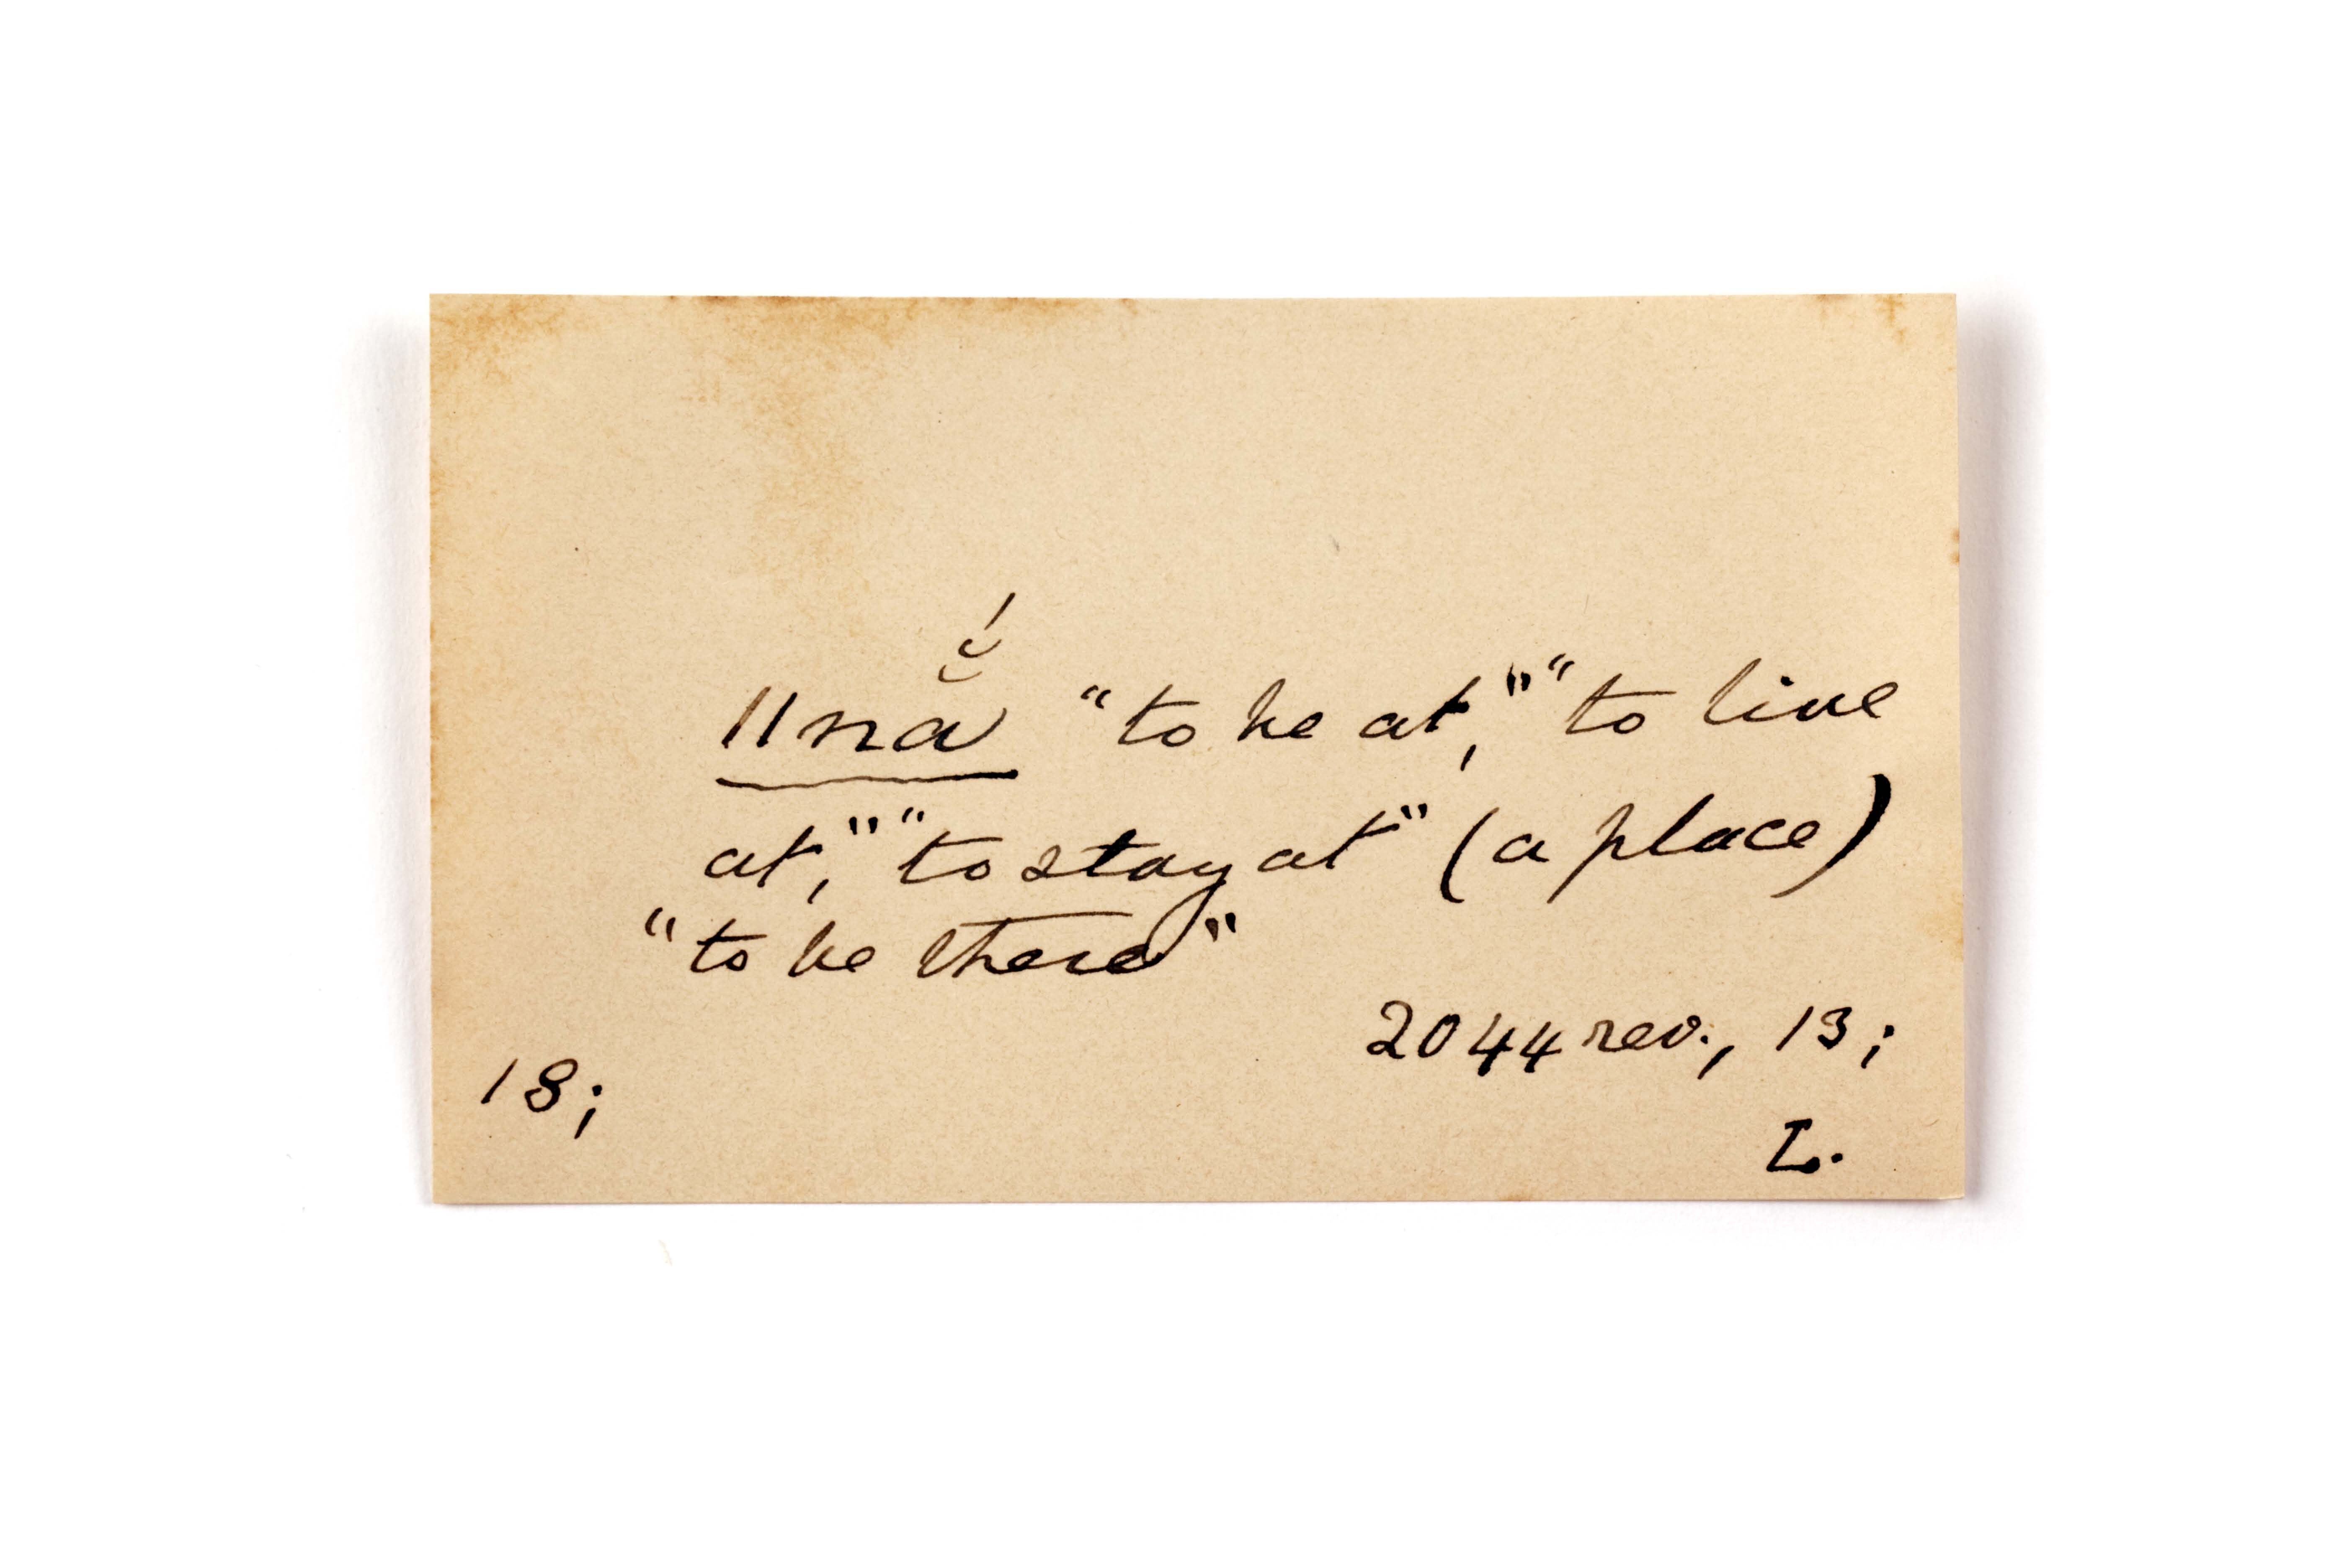 ǁnă̆́ "to be at," "to live
at," "to stay at" (a place)
"to be there"
2044 rev., 13;
18;
L.